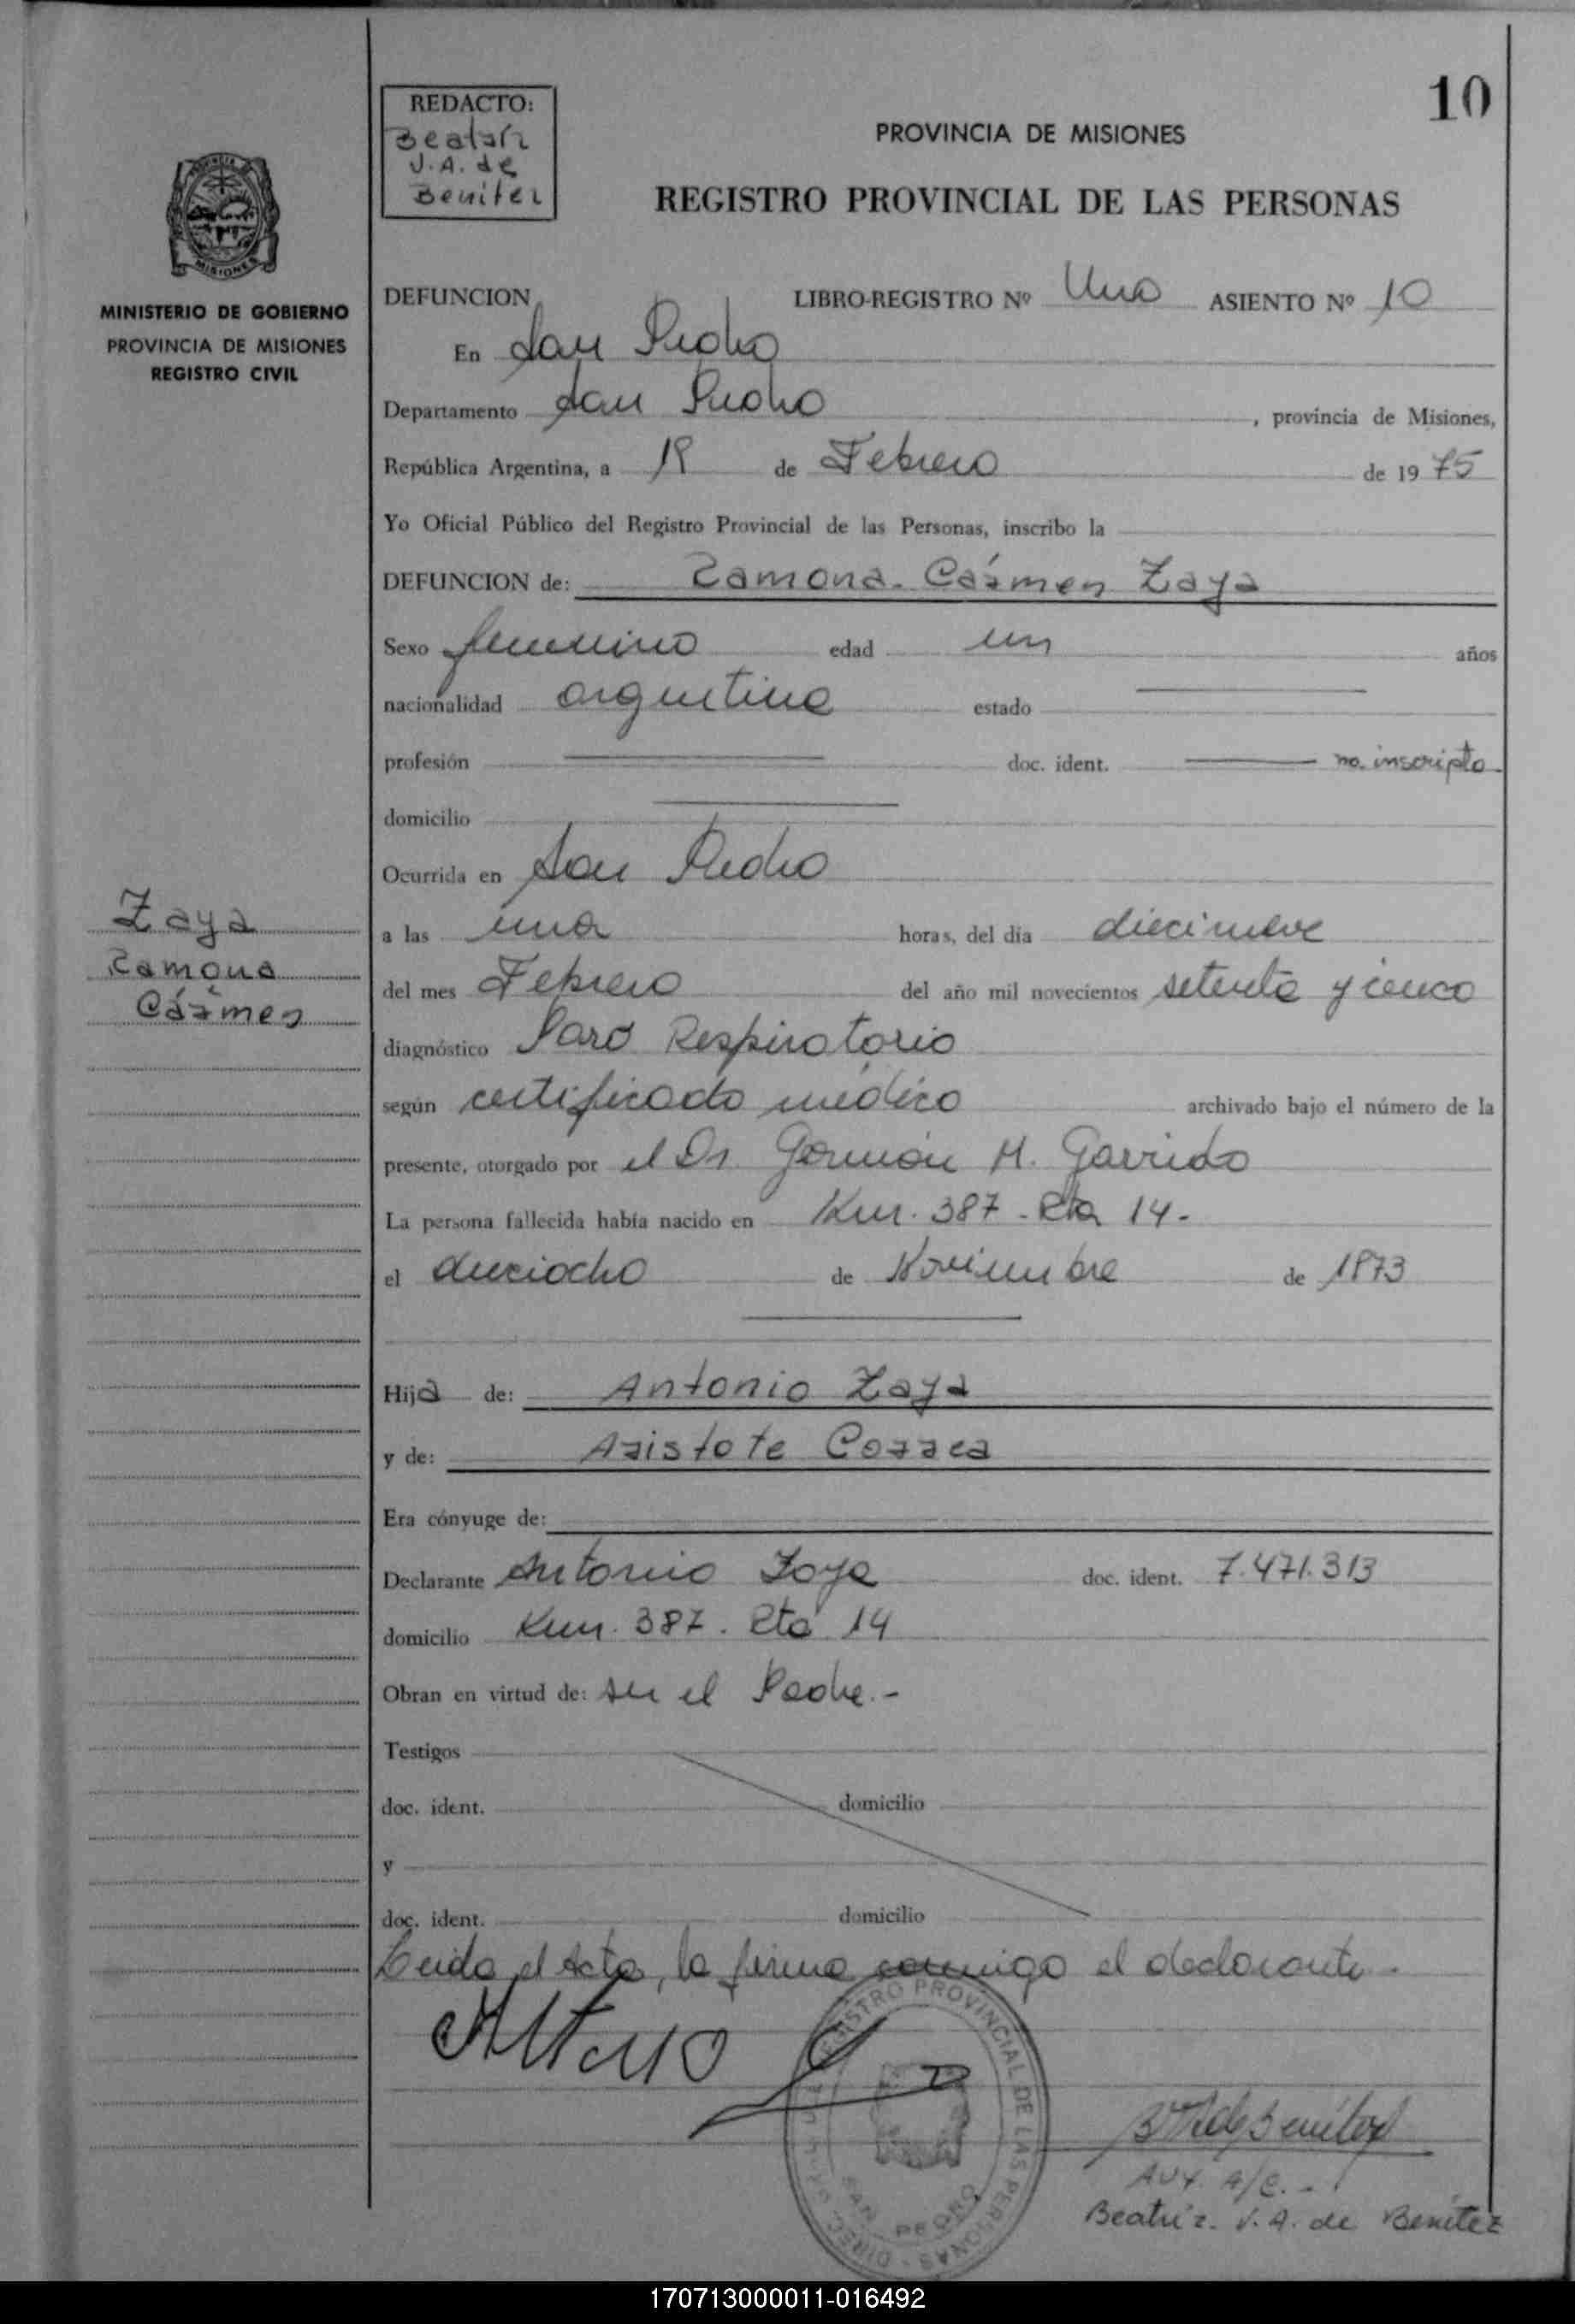 10
REDACTO:
Beatriz
V. A. de
Benitez
PROVINCIA DE MISIONES
REGISTRO PROVINCIAL DE LAS PERSONAS
MISIONES
MINISTERIO DE GOBIERNO
PROVINCIA DE MISIONES
REGISTRO CIVIL
DEFUNCION LIBRO-REGISTRO Nº Uno ASIENTO Nº 10
En San Pedro
Departamento San Pedro, provincia de Misiones,
República Argentina, a 19 de Febrero de 1975
Yo Oficial Público del Registro Provincial de las Personas, inscribo la
DEFUNCION de: Ramona Cármen Zaya
Sexo femenino edad un años
nacionalidad argentina estado
profesión doc. ident. no inscripta
domicilio
Ocurrida en San Pedro
Zaya
Ramona
Cármen
a las una horas, del día diecinueve
del mes Febrero del año mil novecientos setenta y cinco
diagnóstico Paro Respiratorio
según certificado médico archivado bajo el número de la
presente, otorgado por el Dr. Germán H. Garrido
La persona fallecida había nacido en Km. 387 - Rta 14.
el dieciocho de Noviembre de 1873
Hija de: Antonio Zaya
y de: Aristote Correa
Era cónyuge de:
Declarante Antonio Zaya doc. ident. 7.471.313
domicilio Km. 387. Rta 14
Obran en virtud de: ser el Padre.-
Testigos
doc. ident. domicilio
y
doc. ident. domicilio
Leida el Acta, la firma conmigo el declarante.
REGISTRO PROVINCIAL DE LAS PERSONAS
SAN PEDRO
Aux. A/C.-
Beatriz. V. A. de Benitez
170713000011-016492